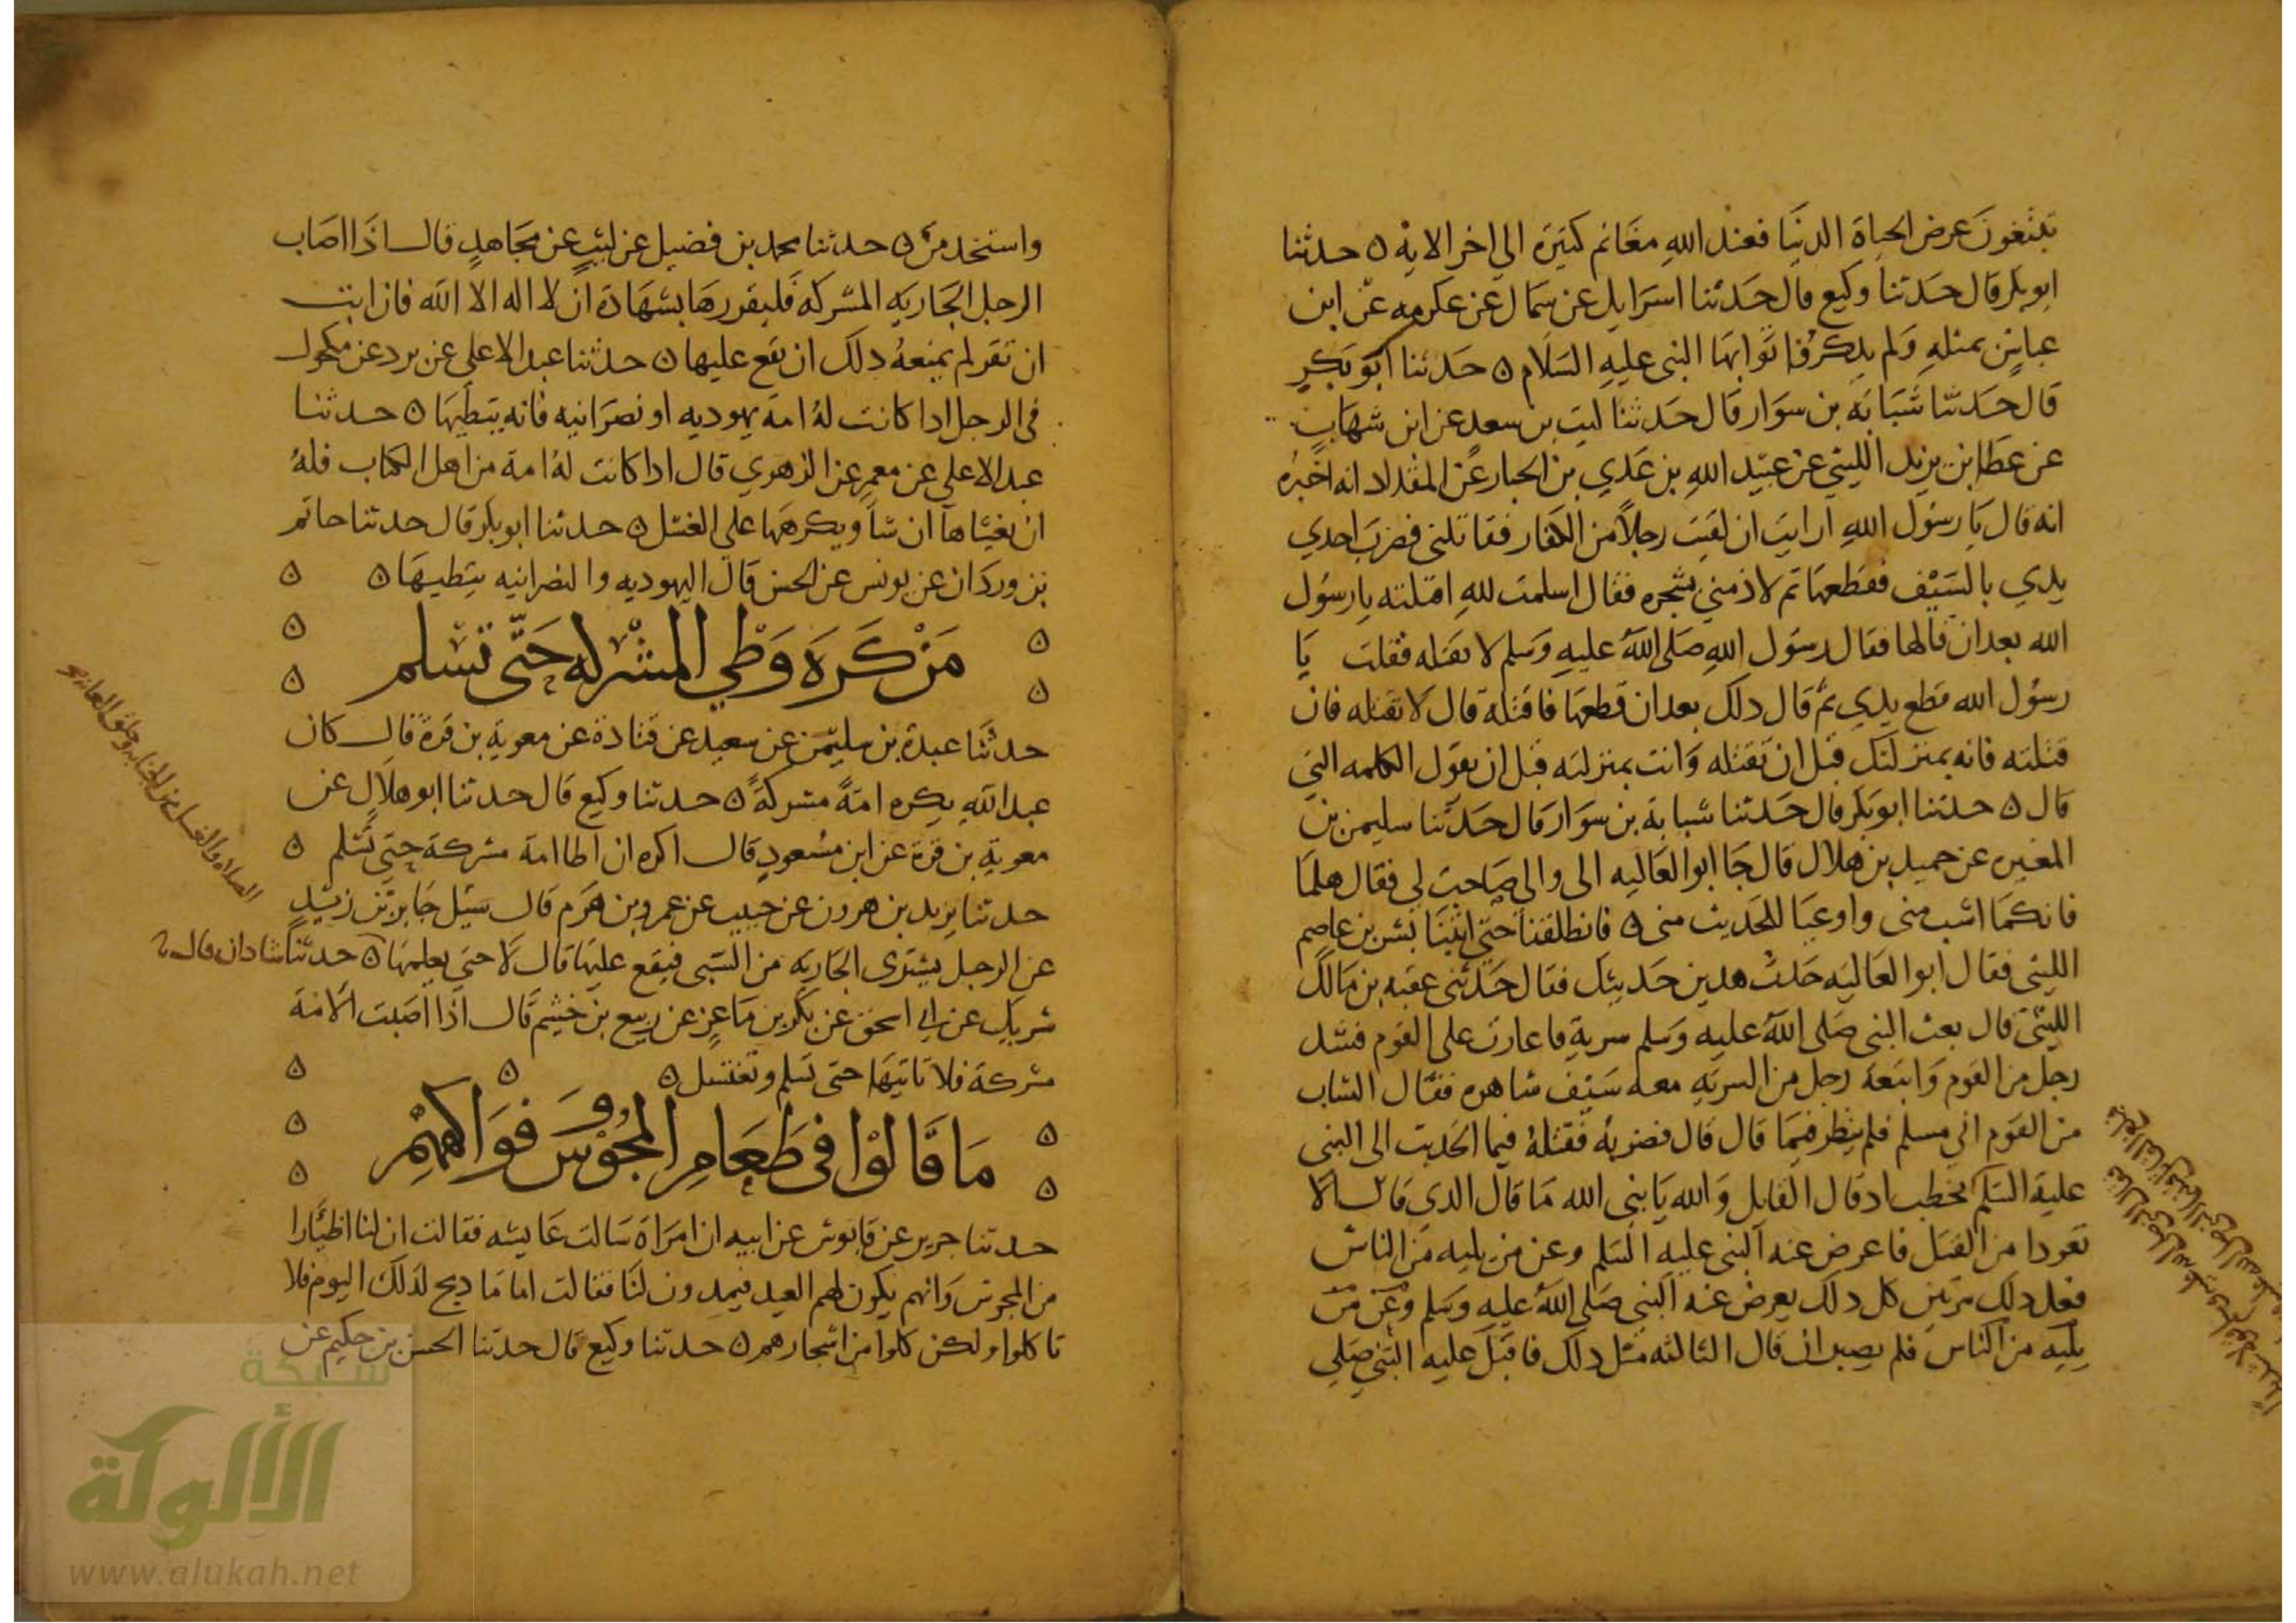 تبتغون عرض الحياة الدنيا فعند الله مغانم كثيرة الى اخر الايه ه حدثنا
ابو بكر قال حدثنا وكيع قال حدثنا اسرايل عن سماك عن عكرمه عن ابن
عباس بمثله ولم يذكر فاتوا بها النبى عليه السلام ه حدثنا ابو بكر
قال حدثنا شبابه بن سوار قال حدثنا ليث بن سعد عن ابن شهاب
عن عطا بن يزيد الليثي عن عبيد الله بن عدي بن الخيار عن المقداد انه اخبره
انه قال يا رسول الله ارايت ان لقيت رجلا من الكفار فقاتلنى فضرب احدي
يدي بالسيف فقطعها ثم لاذ مني بشجره فقال اسلمت لله اقتلته يا رسول
الله بعد ان قالها فقال رسول الله صلى الله عليه وسلم لا تقتله فقلت يا
رسول الله قطع يدي ثم قال ذلك بعد ان قطعها فاقتله قال لا تقتله فان
قتلته فانه بمنزلتك قبل ان تقتله وانت بمنزلته قبل ان يقول الكلمه التي
قال ه حدثنا ابو بكر قال حدثنا شبابة بن سوار قال حدثنا سليمن بن
المغيره عن حميد بن هلال قال جا ابو العاليه الى والى صاحب لي فقال هلما
فانكما اشب منى واوعيا للحديث منى ه فانطلقنا حتى اتينا بشر بن عاصم
الليثى فقال ابو العاليه حدث هذين حديثك فقال حدثنى عقبه بن مالك
الليثى قال بعث النبى صلى الله عليه وسلم سرية فاغارت على القوم فشد
رجل من القوم واتبعه رجل من السريه معه سيف شاهره فقال الشاب
من القوم انى مسلم فلم ينظر فيما قال قال فضربه فقتله فنما الحديث الى النبى
عليه السلم يخطب اذ قال القايل والله يا نبى الله ما قال الذي قال الا
تعوذا من القتل فاعرض عنه النبى عليه السلم وعن من يليه من الناس
فعل ذلك مرتين كل ذلك يعرض عنه النبى صلى الله عليه وسلم وعن من
يليه من الناس فلم يصبر ان قال الثالثه مثل ذلك فاقبل عليه النبي صلى
واستخدمن ه حدثنا محمد بن فضيل عن ليث عن مجاهد قال اذا اصاب
الرجل الجاريه المشركه فليقررها بشهادة ان لا اله الا الله فان ابت
ان تقر لم يمنعه ذلك ان يقع عليها ه حدثنا عبد الاعلى عن برد عن مكحول
فى الرجل اذا كانت له امة يهوديه او نصرانيه فانه يتطيها ه حدثنا
عبد الاعلى عن معمر عن الزهري قال اذا كانت له امة من اهل الكتاب فله
ان يغشاها ان شا ويكرهها على الغسل ه حدثنا ابو بكر قال حدثنا حاتم
بن وردان عن يونس عن الحسن قال اليهوديه والنصرانيه يتطيها ه
من كره وطي المشركه حتى تسلم
حدثنا عبدة بن سليمن عن سعيد عن قتادة عن معوية بن قرة قال كان
عبد الله يكره امة مشركة ه حدثنا وكيع قال حدثنا ابو هلال عن
معوية بن قرة عن ابن مسعود قال اكره ان اطا امة مشركة حتى تسلم
حدثنا يزيد بن هرون عن حبيب عن عمرو بن هرم قال سئل جابر بن زيد
عن الرجل يشترى الجاريه من السبى فيقع عليها قال لا حتى يعلمها
الصلاه والغسل من الجنابه وحلق العانه
ه حدثنا شاذان قال
شريك عن ابي اسحق عن بكر بن ماعز عن ربيع بن خثيم قال اذا اصبت الامة
مشركة فلا تاتيها حتى تسلم وتغتسل ه
ما قالوا فى طعام المجوس وفواكههم
حدثنا جرير عن قابوس عن ابيه ان امراة سالت عايشه فقالت ان لنا اظيارا
من المجوس وانهم يكون لهم العيد فيهدون لنا فقالت اما ما ذبح لذلك اليوم فلا
تاكلوا ولكن كلوا من اشجارهم ه حدثنا وكيع قال حدثنا الحسن بن حكيم عن
شبكة
الألوكة
www.alukah.net